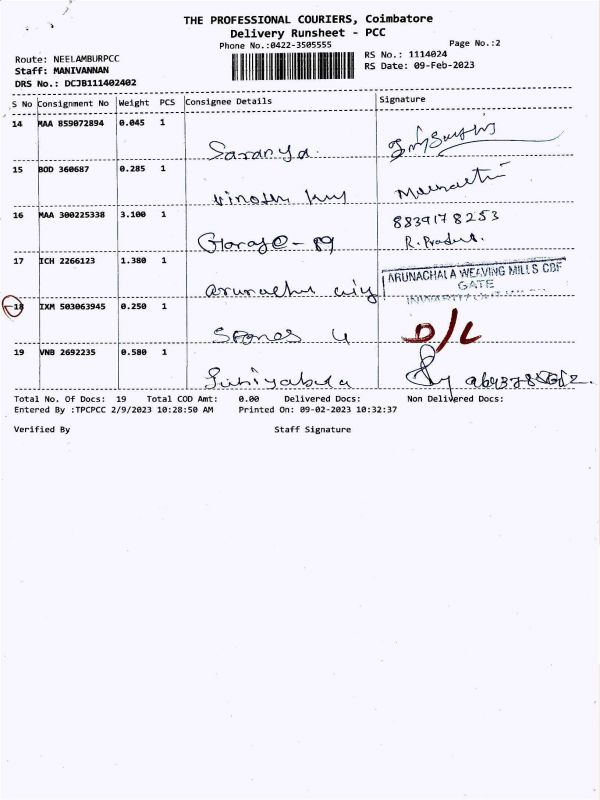 THE PROFESSIONAL COURIERS, Coimbatore
Delivery Runsheet - PCC
Phone No.:0422-3505555
Page No.:2
Route: NEELAMBURPCC
RS No.: 1114024
Staff: MANIVANNAN
RS Date: 09-Feb-2023
DRS No.: DCJB111402402
S No Consignment No Weight PCS Consignee Details Signature
14 MAA 859072894 0.045 1
Saranya.
15 BOD 360687 0.285 1
16 MAA 300225338 3.100 1 8839178253
17 ICH 2266123 1.380 1
ARUNACHALA WEAVING MILLS CBE
GATE
18 IXM 503063945 0.250 1
D/L
19 VNB 2692235 0.580 1
Total No. Of Docs: 19 Total COD Amt: 0.00 Delivered Docs: Non Delivered Docs:
Entered By :TPCPCC 2/9/2023 10:28:50 AM Printed On: 09-02-2023 10:32:37
Verified By Staff Signature